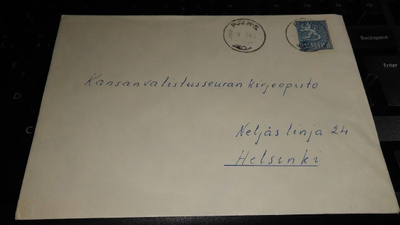 Kansanvalistusseuran kirjeopisto
Neljäs linja 24
Helsinki
Backspace